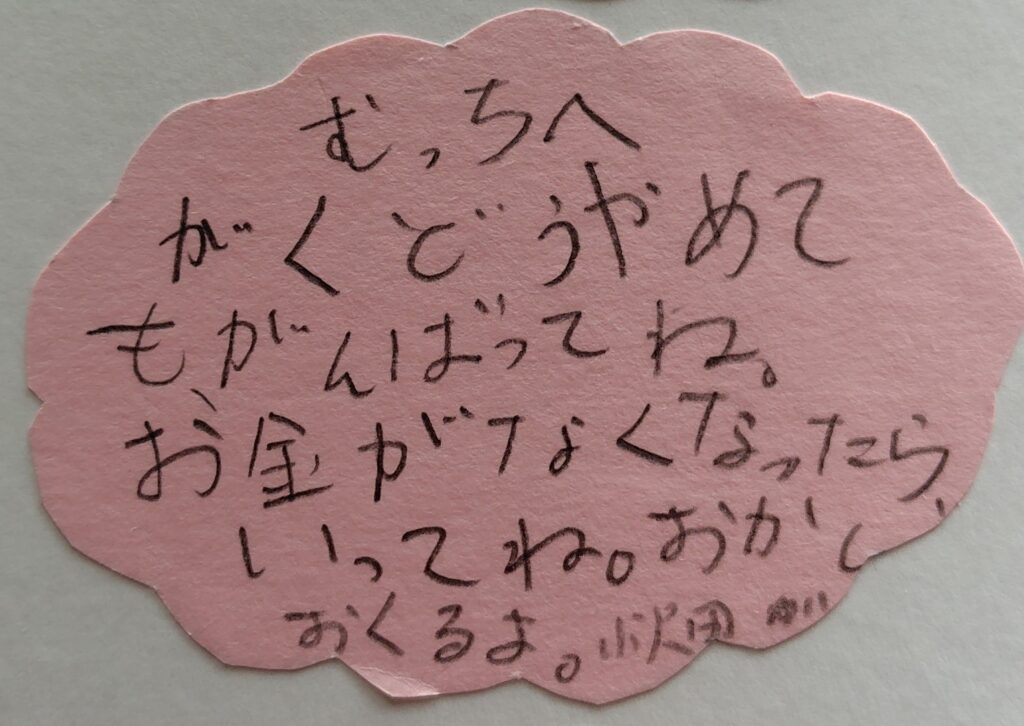 むっちへ
がくどうやめて
もがんばってね。
お金がなくなったら
いってね。おかし
おくるよ。